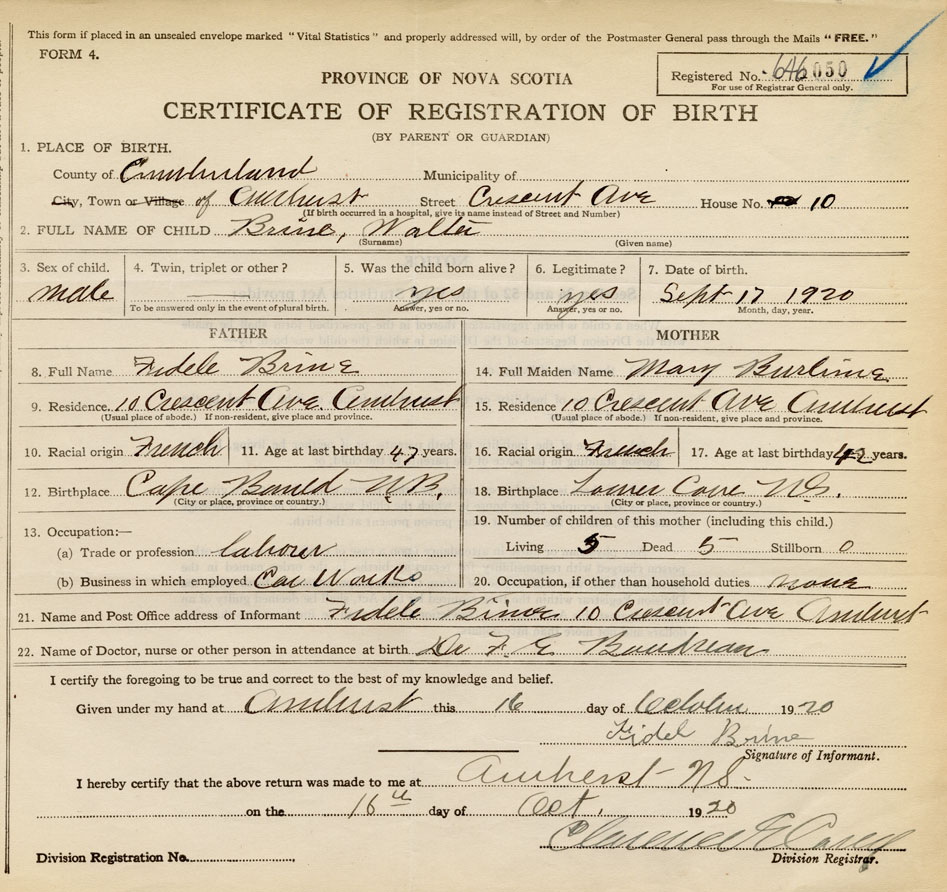 This form if placed in an unsealed envelope marked "Vital Statistics" and properly addressed will, by order of the Postmaster General pass through the Mails "FREE."
FORM 4.
PROVINCE OF NOVA SCOTIA
Registered No. 646050
For use of Registrar General only.
CERTIFICATE OF REGISTRATION OF BIRTH
(BY PARENT OR GUARDIAN)
1. PLACE OF BIRTH.
County of Cumberland Municipality of
City, Town or Village of Amherst Street Crescent Ave House No. 10
(If birth occurred in a hospital, give its name instead of Street and Number)
2. FULL NAME OF CHILD Brine, Walter
(Surname) (Given name)
3. Sex of child. 4. Twin, triplet or other? 5. Was the child born alive? 6. Legitimate? 7. Date of birth.
male yes yes Sept 17 1920
To be answered only in the event of plural birth. Answer, yes or no. Answer, yes or no. Month, day, year.
FATHER MOTHER
8. Full Name Fidele Brine 14. Full Maiden Name Mary Burline
9. Residence. 10 Crescent Ave. Amherst 15. Residence 10 Crescent Ave Amherst
(Usual place of abode.) If non-resident, give place and province. (Usual place of abode.) If non-resident, give place and province.
10. Racial origin French 11. Age at last birthday 47 years. 16. Racial origin French 17. Age at last birthday 42 years.
12. Birthplace Cape Bauld N.B. 18. Birthplace Lower Cove N.S.
(City or place, province or country.) (City or place, province or country.)
13. Occupation:— 19. Number of children of this mother (including this child.)
(a) Trade or profession labourer Living 5 Dead 5 Stillborn 0
(b) Business in which employed Car Works 20. Occupation, if other than household duties none
21. Name and Post Office address of Informant Fidele Brine 10 Crescent Ave Amherst
22. Name of Doctor, nurse or other person in attendance at birth Dr F. E. Boudreau
I certify the foregoing to be true and correct to the best of my knowledge and belief.
Given under my hand at Amherst this 16 day of October 1920
Fidel Brine
Signature of Informant.
I hereby certify that the above return was made to me at Amherst N.S.
on the 16th day of Oct. 1920
Clarence E
Division Registration No. Division Registrar.